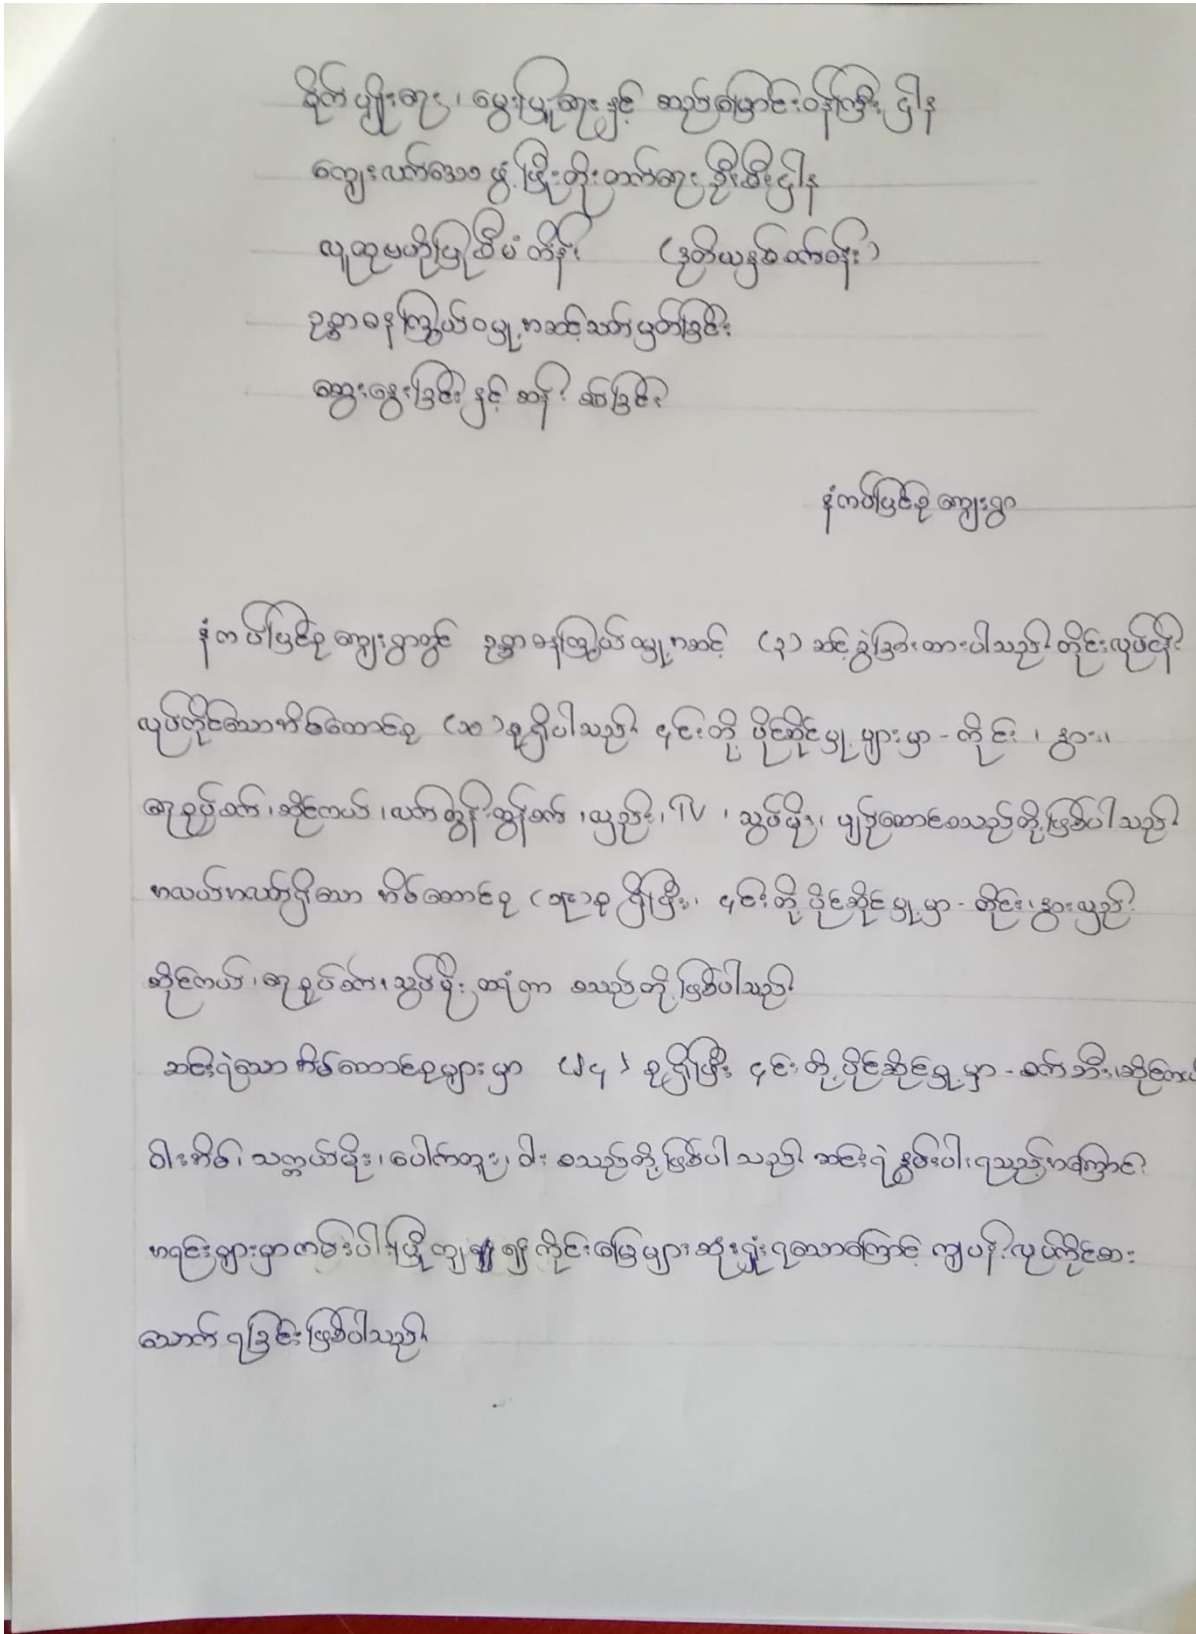 စိုက်ပျိုးရေး၊ မွေးမြူရေးနှင့် ဆည်မြောင်းဝန်ကြီးဌာန
ကျေးလက်ဒေသဖွံ့ဖြိုးတိုးတက်ရေးဦးစီးဌာန
လူထုဗဟိုပြုစီမံကိန်း (ဒုတိယနှစ်စက်ဝန်း)
ဥစ္စာဓနကြွယ်ဝမှုအဆင့်သတ်မှတ်ခြင်း
ဆွေးနွေးခြင်းနှင့် ဆန်းစစ်ခြင်း
နံကပ်ပြင်စုကျေးရွာ
နံကပ်ပြင်စုကျေးရွာတွင် ဥစ္စာဓနကြွယ်ဝမှုအဆင့် (၃) ဆင့်ခွဲခြားထားပါသည်။ တိုင်းလုပ်ငန်း
လုပ်ကိုင်သောအိမ်ထောင်စု (၁၀) စုရှိပါသည်။ ၎င်းတို့ပိုင်ဆိုင်မှုများမှာ - တိုင်း ၊ နွား၊
ရေစုပ်စက်၊ ဆိုင်ကယ်၊ လက်တွန်းထွန်စက်၊ လှည်း၊ TV ၊ သွပ်မိုး၊ ပျဉ်ထောင်စသည်တို့ဖြစ်ပါသည်။
အလယ်အလတ်ရှိသော အိမ်ထောင်စု စုရှိပြီး၊ ၎င်းတို့ပိုင်ဆိုင်မှုမှာ - တိုင်း၊ နွားလှည်း
ဆိုင်ကယ်၊ ရေစုပ်စက်၊ သွပ်မိုး ထရံကာ စသည်တို့ဖြစ်ပါသည်။
ဆင်းရဲသောအိမ်ထောင်စုများမှာ (၂၄) စုရှိပြီး ၎င်းတို့ပိုင်ဆိုင်မှုမှာ - စက်ဘီး၊ ဆိုင်ကယ်
ဝါးအိမ်၊ သက္ကယ်မိုး၊ ပေါက်တူး၊ ဓါး စသည်တို့ဖြစ်ပါသည်။ ဆင်းရဲနွမ်းပါးရသည့်အကြောင်း
အရင်းများမှာ ကမ်းပါးပြိုကျ၍ ကိုင်းမြေများဆုံးရှုံးရသောကြောင့် ကျပန်းလုပ်ကိုင်စား
သောက်ရခြင်းဖြစ်ပါသည်။